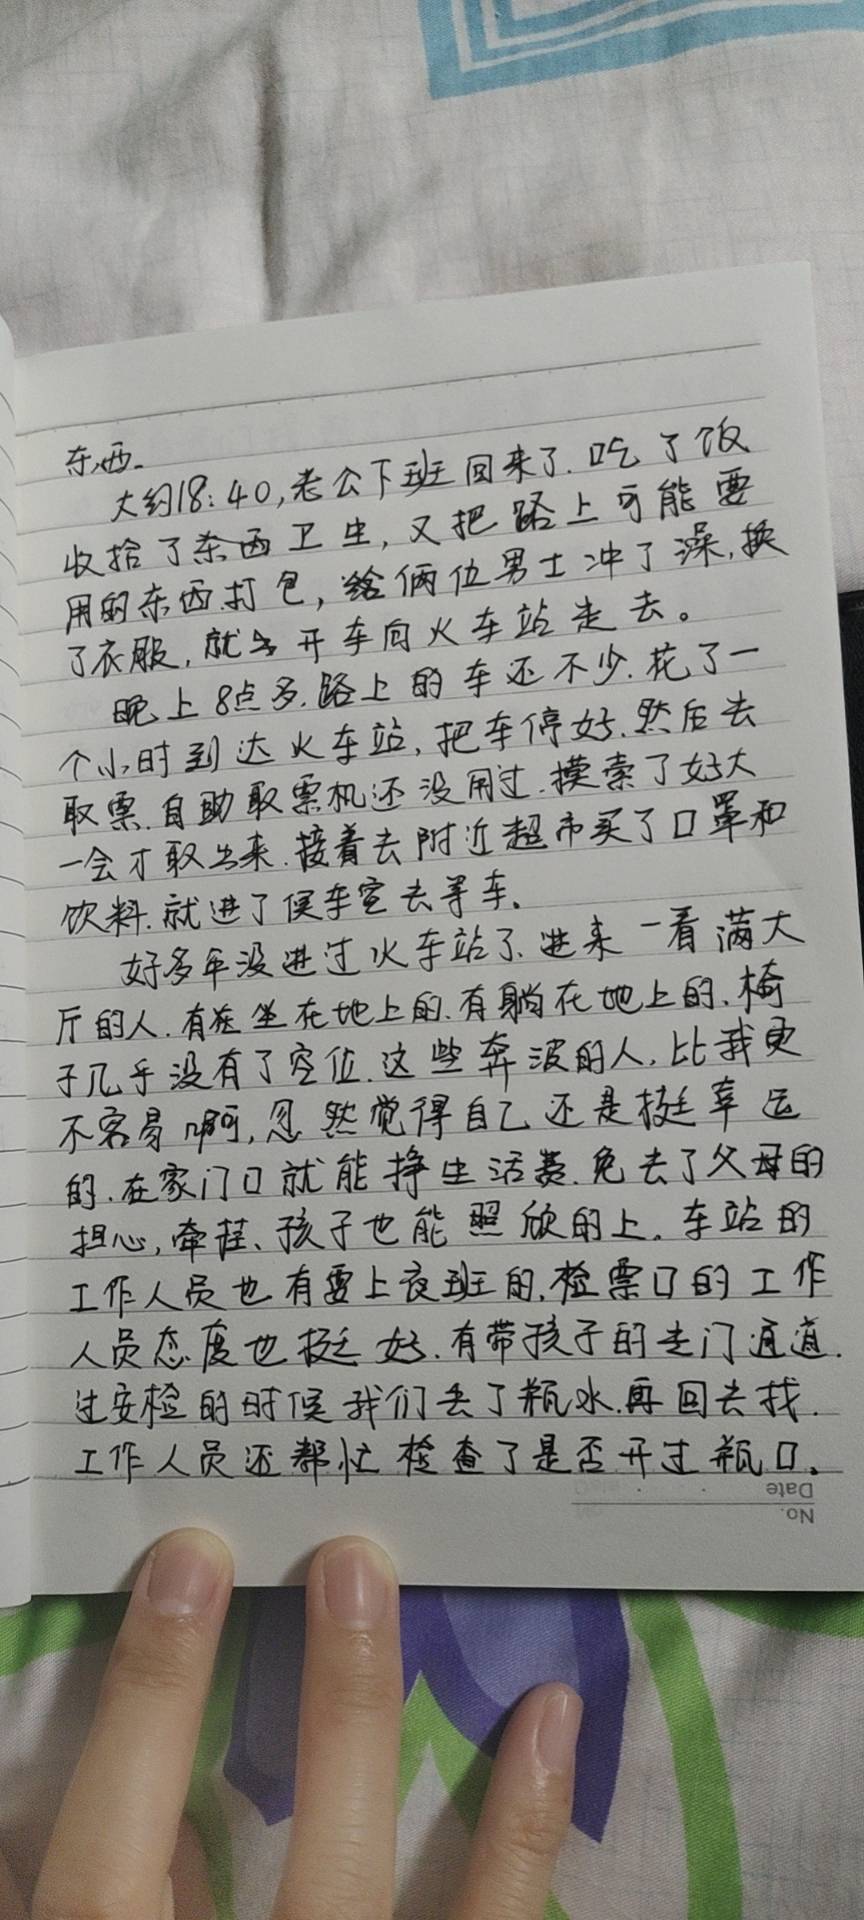 东西.
大约18:40,老公下班回来了.吃了饭
收拾了东西卫生,又把路上可能要
用的东西打包,给俩位男士冲了澡,换
了衣服,就开车向火车站走去。
晚上8点多.路上的车还不少.花了一
个小时到达火车站,把车停好.然后去
取票.自助取票机还没用过.摸索了好大
一会才取出来.接着去附近超市买了口罩和
饮料.就进了侯车室去等车。
好多年没进过火车站了.进来一看满大
厅的人.有坐在地上的.有躺在地上的.椅
子几乎没有了空位.这些奔波的人,比我更
不容易啊,忽然觉得自己还是挺幸运
的.在家门口就能挣生活费.免去了父母的
担心,牵挂、孩子也能照顾的上。车站的
工作人员也有要上夜班的,检票口的工作
人员态度也挺好.有带孩子的走门通道.
过安检的时候我们丢了瓶水.再回去找.
工作人员还帮忙检查了是否开过瓶口。
No.
Date